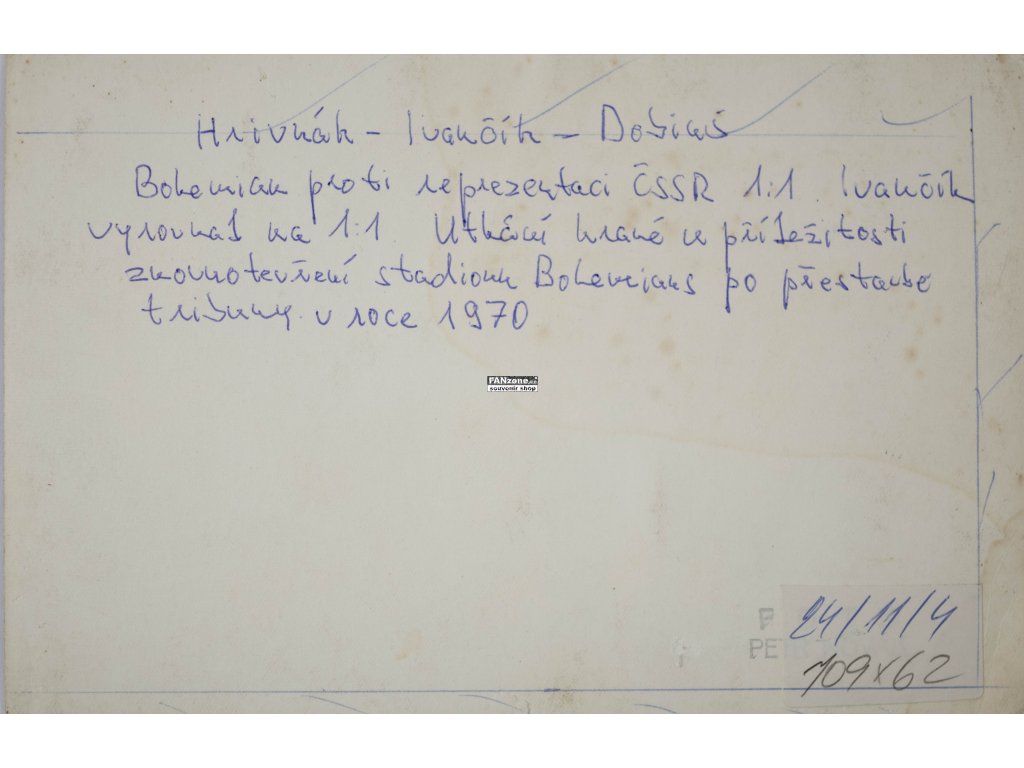 Hrivnák - Ivančík - Dobiaš
Bohemian proti reprezentaci ČSSR 1:1. Ivančík
vyrovnal na 1:1. Utkání hrané u příležitosti
znovuotevření stadionu Bohemians po přestavbě
tribuny v roce 1970
FANzone.cz
souvenir shop
24/11/4
109x62